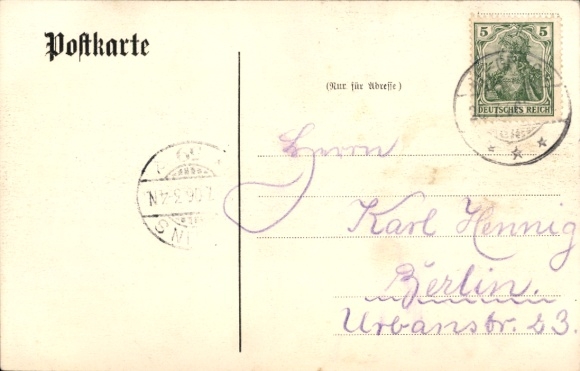 Postkarte
(Nur für Adresse)
5 5
DEUTSCHES REICH
Herrn
Karl Hennig
Berlin.
Urbanstr. 23.